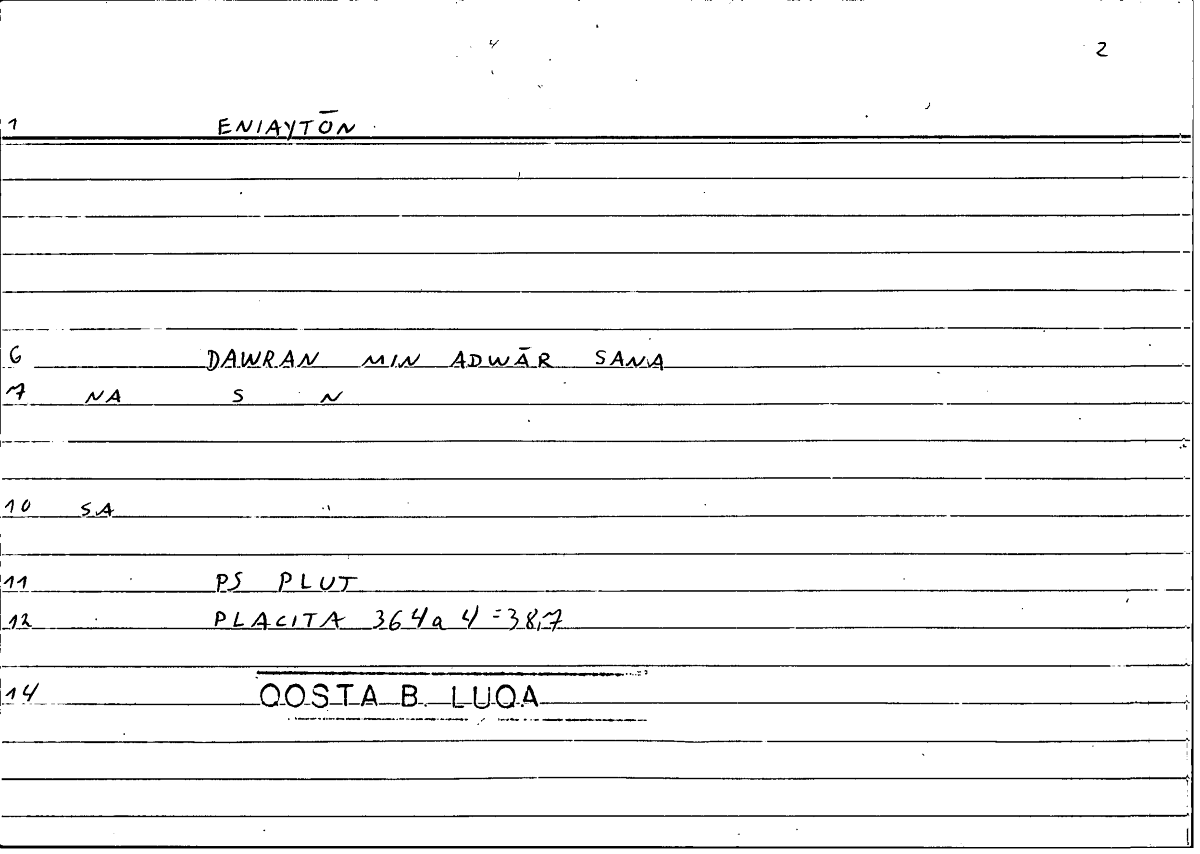 2
1 ENIAYTŌN
6 DAWRAN MIN ADWĀR SANA
7 NA S N
10 SA
11 PS PLUT
12 PLACITA 364a 4 = 38,7
14 QOSTA B. LUQA